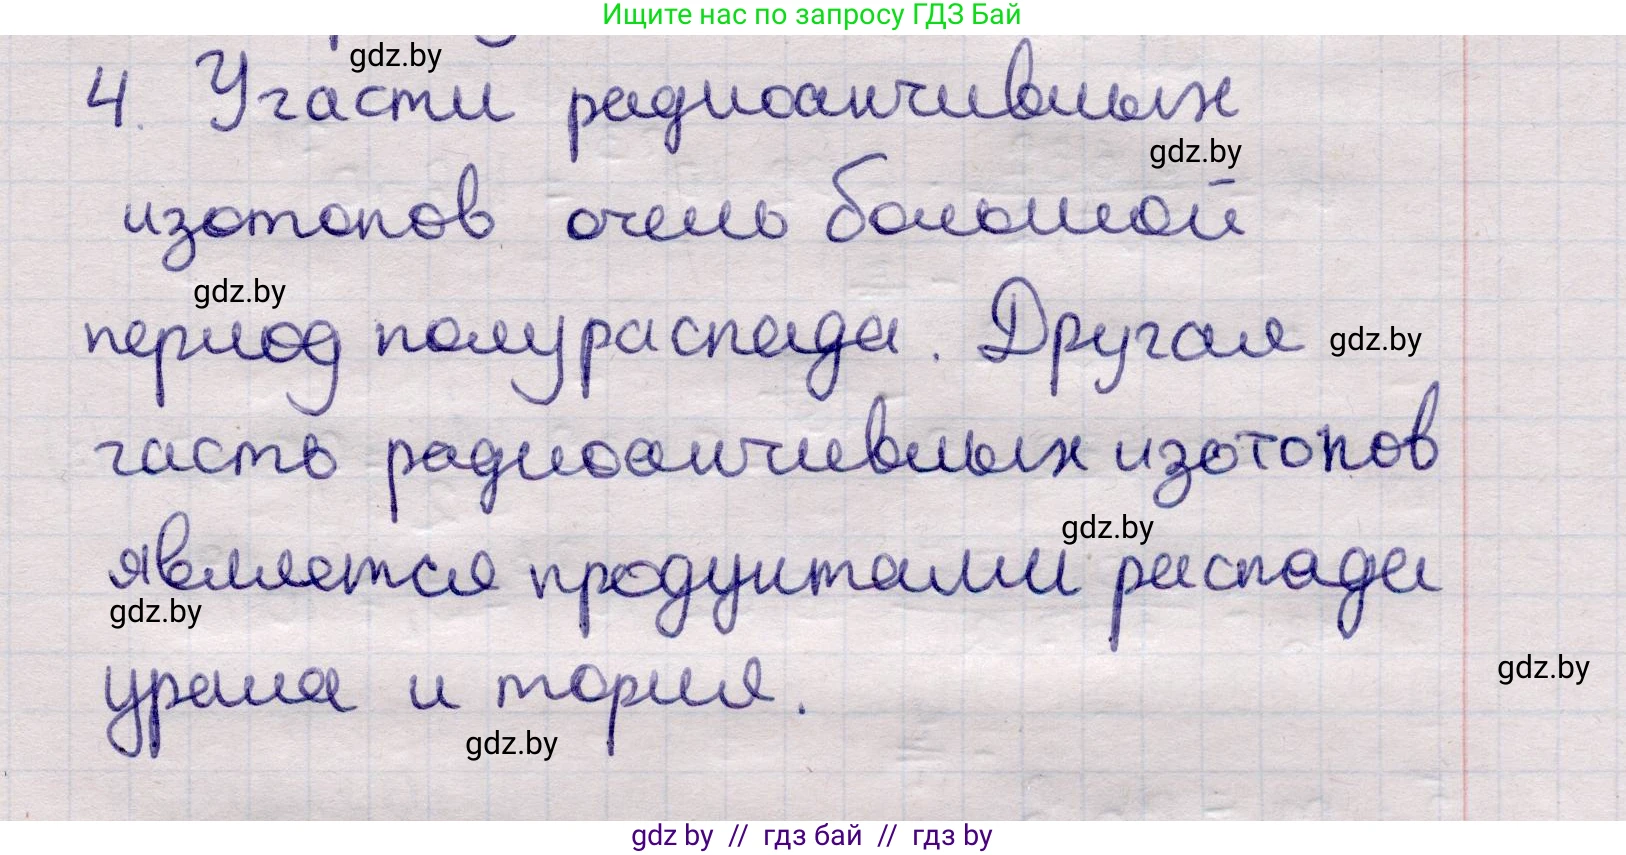 Ищите нас по запросу ГДЗ Бай
gdz.by
4. У части радиоактивных
gdz.by
изотопов очень большой
gdz.by
период полураспада. Другая
gdz.by
часть радиоактивных изотопов
gdz.by
является продуктами распада
gdz.by
урана и тория.
gdz.by
gdz.by
gdz by // гдз бай // гдз by